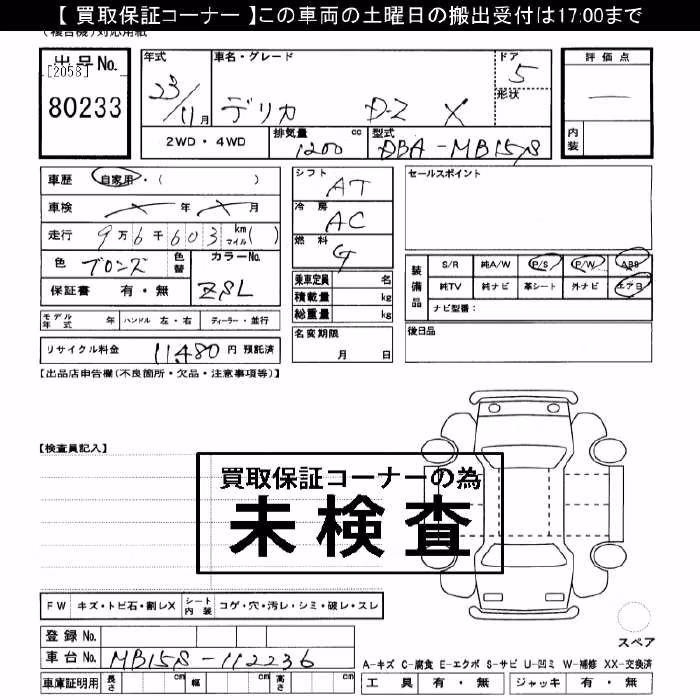 【 買取保証コーナー 】この車両の土曜日の搬出受付は17:00まで
(複合機)対応用紙
出品No.
[2058]
80233
年式
23/11月
車名・グレード
デリカ D-2 X
ドア
5
形状
評価点
—
内装
2WD・4WD
排気量 cc
1200
型式
DBA-MB15S
車歴 自家用・( )
車検 年 月
走行 9万6千603 km マイル( )
色 ブロンズ
色替
カラーNo.
ZSL
保証書 有・無
シフト
AT
冷房
AC
燃料
G
乗車定員 名
積載量 kg
総重量 kg
セールスポイント
装備品
S/R 純A/W P/S P/W ABS
純TV 純ナビ 革シート 外ナビ エアB
ナビ型番:
モデル年式 年
ハンドル 左・右
ディーラー・並行
名変期限
月 日
後日品
リサイクル料金 11,480円 預託済
【出品店申告欄(不良箇所・欠品・注意事項等)】
【検査員記入】
買取保証コーナーの為
未検査
FW キズ・トビ石・割レX
シート内装 コゲ・穴・汚レ・シミ・破レ・スレ
スペア
登録No.
車台No. MB15S-112236
車庫証明用 長さ cm 幅 cm 高さ cm
A-キズ C-腐食 E-エクボ S-サビ U-凹ミ W-補修 XX-交換済
工具 有・無 ジャッキ 有・無